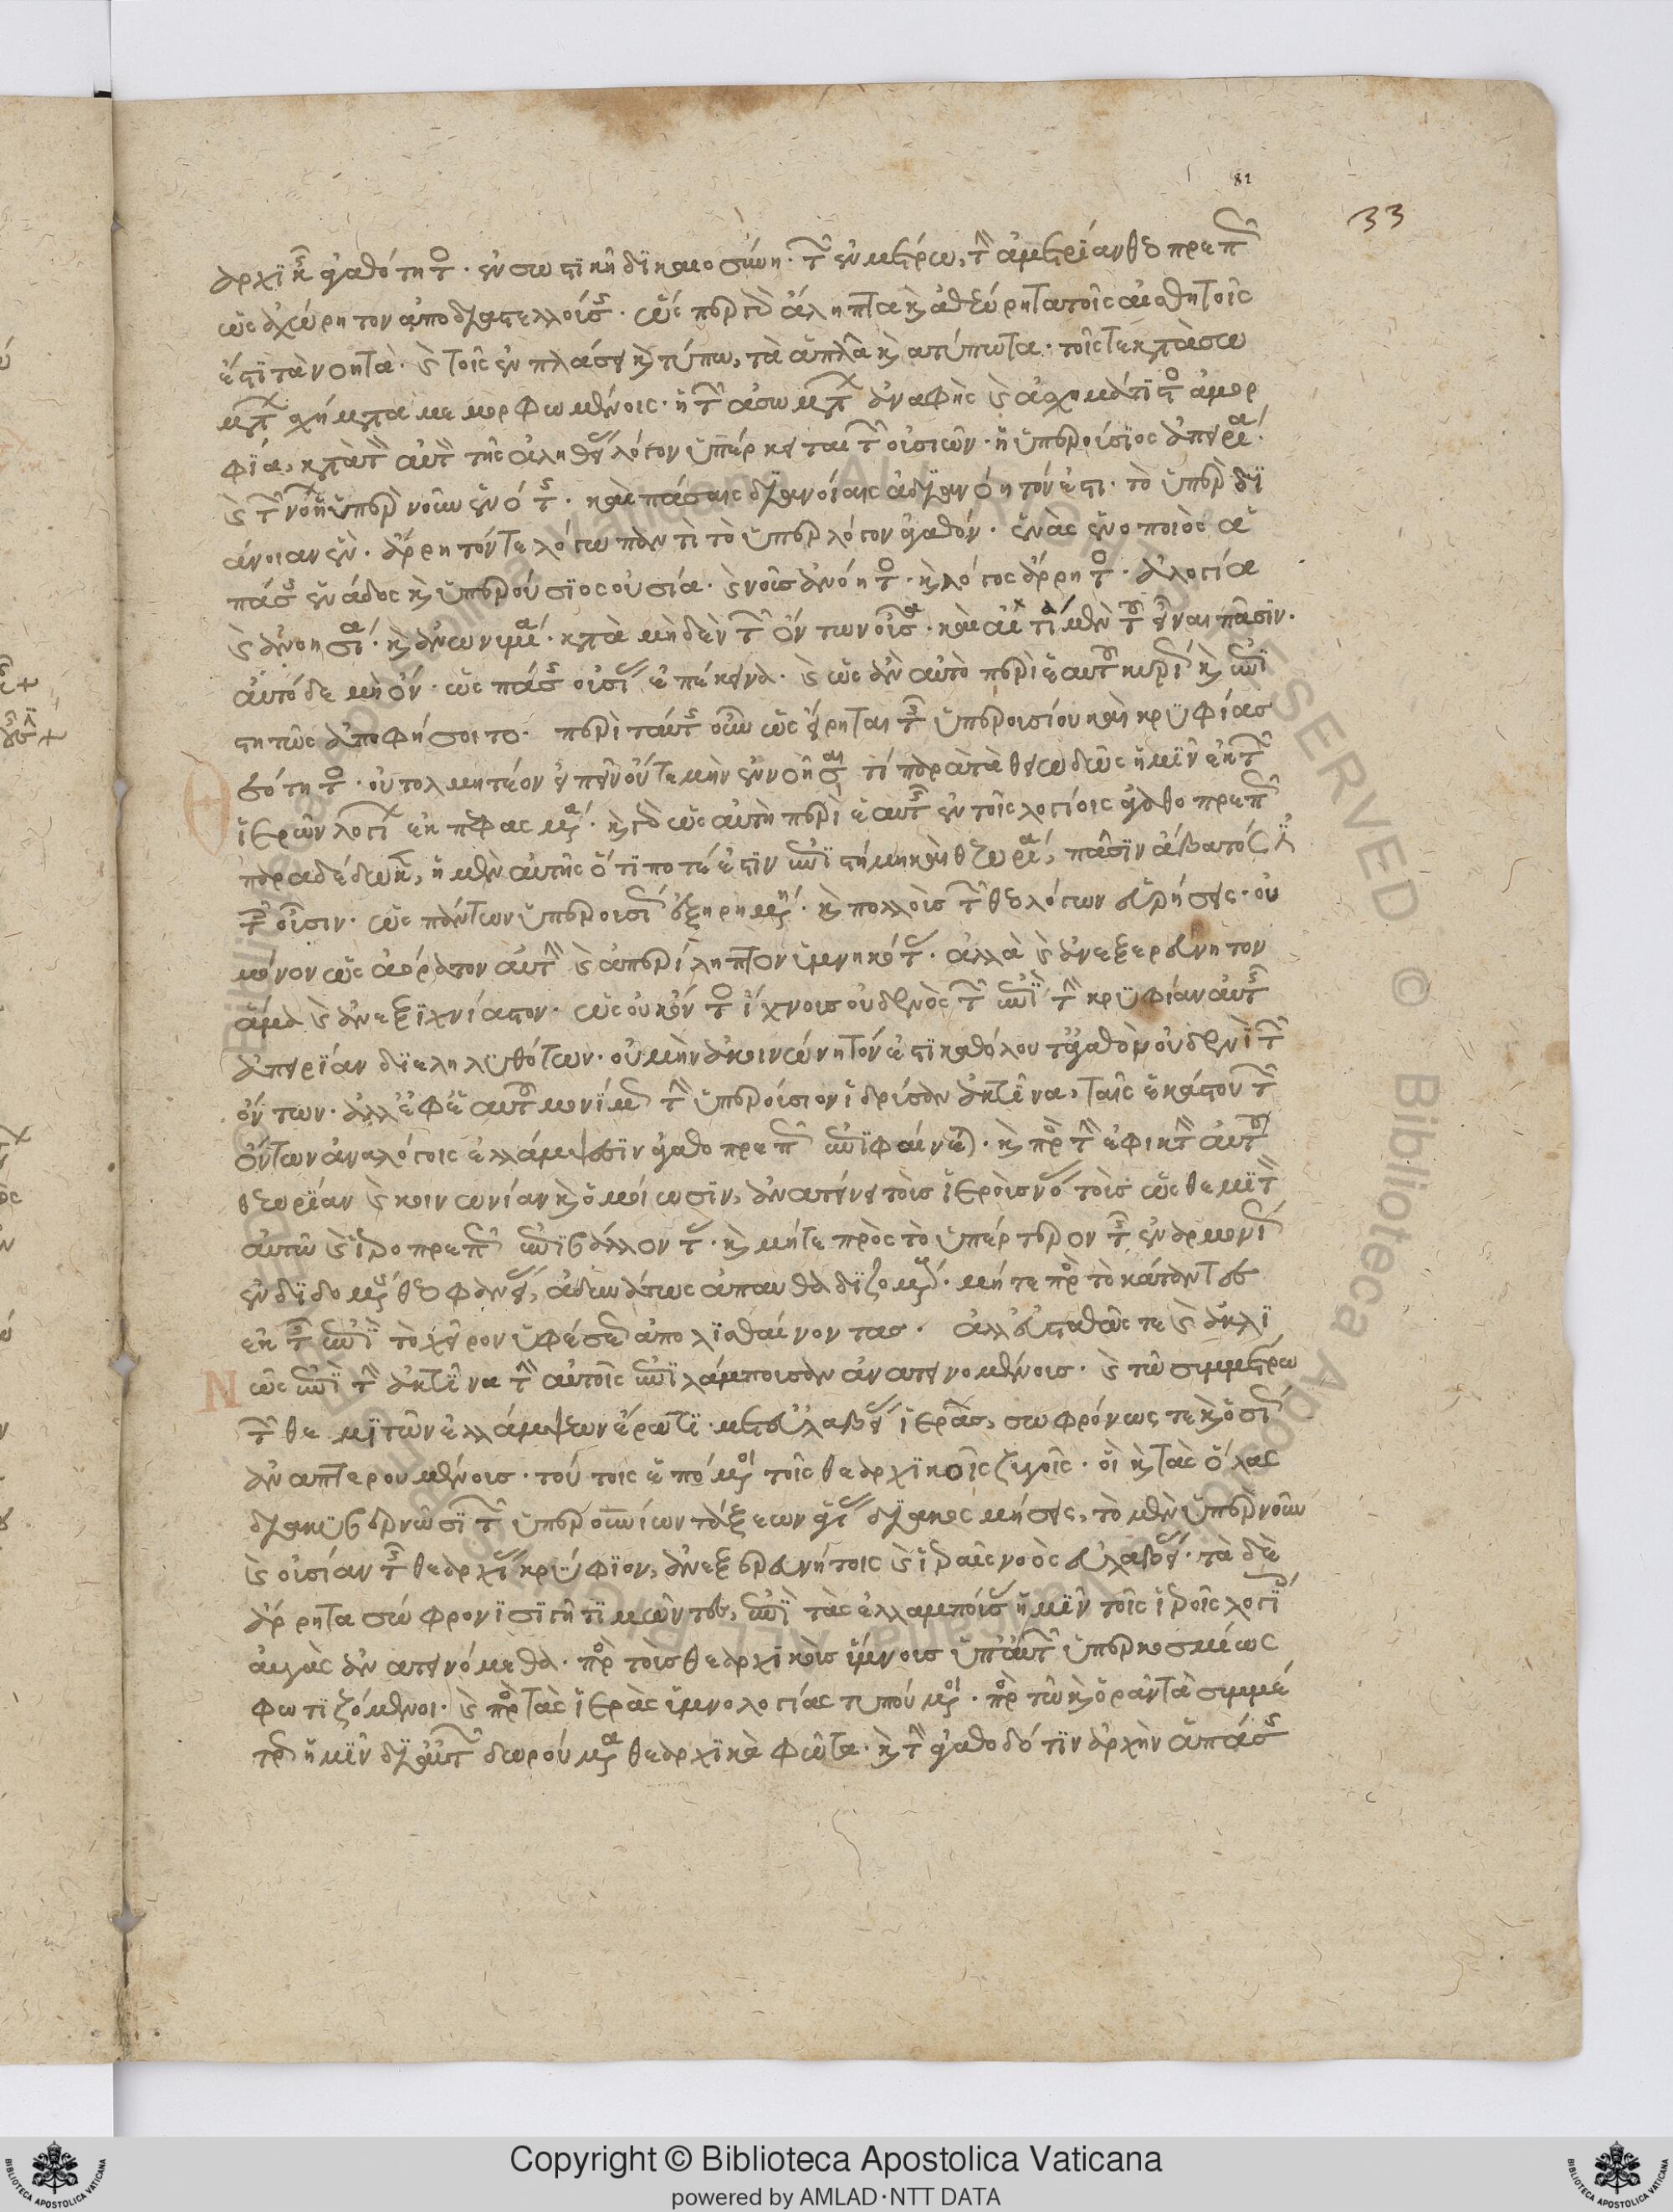 αρχικῆς ἀγαθότητος· ἐν σωστικῆ δικαιοσύνη· τῶν ἐν μέτρω, τὴν ἀμετρίαν θεοπρεπῶς
ὡς ἀχώρητον ἀποδιαστελλούσης· ὥσπερ γὰρ ἄληπτα καὶ ἀθεώρητα τοῖς αἰσθητοῖς
ἐστὶ τὰ νοητά· καὶ τοῖς ἐν πλάσει καὶ τύπω, τὰ ἁπλᾶ καὶ ἀτύπωτα· τοῖς τε κατὰ σω
μάτων σχήματα μεμορφωμένοις· ἡ τῶν ἀσωμάτων ἀναφὴς καὶ ἀσχημάτιστος ἀμορ
φία, κατὰ τὸν αὐτὸν τῆς ἀληθείας λόγον ὑπέρκειται τῶν οὐσιῶν· ἡ ὑπερούσιος ἀπειρία·
καὶ τῶν νοῶν ἡ ὑπὲρ νοῦν ἑνότης· καὶ πάσαις διανοίαις ἀδιανόητόν ἐστι· τὸ ὑπὲρ δι
άνοιαν ἕν· ἄρρητόν τε λόγω παντὶ τὸ ὑπὲρ λόγον ἀγαθόν· ἑνὰς ἑνοποιὸς ἁ
πάσης ἑνάδος καὶ ὑπερούσιος οὐσία· καὶ νοῦς ἀνόητος· καὶ λόγος ἄρρητος· ἀλογία
καὶ ἀνοησία· καὶ ἀνωνυμία· κατὰ μηδὲν τῶν ὄντων οὖσα· καὶ αἴτιον μὲν τοῦ εἶναι πᾶσιν·
αὐτὸ δὲ μὴ ὄν· ὡς πάσης οὐσίας ἐπέκεινα· καὶ ὡς ἂν αὐτὸ περὶ ἑαυτοῦ κυρίως καὶ ἐπι
στητῶς ἀποφήσοιτο· περὶ ταύτης οὖν ὡς εἴρηται τῆς ὑπερουσίου καὶ κρυφίας
θεότητος· οὐ τολμητέον εἰπεῖν οὔτε μὴν ἐννοῆσαί τι παρὰ τὰ θειωδῶς ἡμῖν ἐκ τῶν
ἱερῶν λογίων ἐκπεφασμένα· καὶ γὰρ ὡς αὐτὴ περὶ ἑαυτῆς ἐν τοῖς λογίοις ἀγαθοπρεπῶς
παραδέδωκεν, ἡ μὲν αὐτῆς ὅτι ποτέ ἐστιν ἐπιστήμη καὶ θεωρία, πᾶσιν ἄβατός ἐστι
τοῖς οὖσιν· ὡς πάντων ὑπερουσίως ἐξηρημένη· καὶ πολλοὺς τῶν θεολόγων εὑρήσεις· οὐ
μόνον ὡς ἀόρατον αὐτὴν καὶ ἀπερίληπτον ὑμνηκότας· ἀλλὰ καὶ ἀνεξερεύνητον
ἅμα καὶ ἀνεξιχνίαστον· ὡς οὐκ ὄντος ἴχνους οὐδενὸς τῶν ἐπὶ τὴν κρυφίαν αὐτῆς
ἀπειρίαν διεληλυθότων· οὐ μὴν ἀκοινώνητόν ἐστι καθόλου τἀγαθὸν οὐδενὶ τῶν
ὄντων· ἀλλ' ἐφ' ἑαυτοῦ μονίμως τὴν ὑπερούσιον ἱδρύσαν ἀκτῖνα, ταῖς ἑκάστου τῶν
ὄντων ἀναλόγοις ἐλλάμψεσιν ἀγαθοπρεπῶς ἐπιφαίνεται· καὶ πρὸς τὴν ἐφικτὴν αὐτοῦ
θεωρίαν καὶ κοινωνίαν καὶ ὁμοίωσιν, ἀνατείνει τοὺς ἱεροὺς νόας τοὺς ὡς θεμιτὸν
αὐτῶ καὶ ἱεροπρεπῶς ἐπιβάλλοντας· καὶ μήτε πρὸς τὸ ὑπέρτερον τῆς ἐναρμονίως
ἐνδιδομένης θεοφανείας, ἀδυνάτως ἀπαυθαδιζομένους· μήτε πρὸς τὸ κάταντες
ἐκ τῆς ἐπὶ τὸ χεῖρον ὑφέσεως ἀπολισθαίνοντας· ἀλλ' εὐσταθῶς τε καὶ ἀκλι
νῶς ἐπὶ τὴν ἀκτῖνα τὴν αὐτοῖς ἐπιλάμπουσαν ἀνατεινομένους· καὶ τῶ συμμέτρω
τῶν θεμιτῶν ἐλλάμψεων ἔρωτι· μετ' εὐλαβείας ἱερᾶς, σωφρόνως τε καὶ ὁσίως
ἀναπτερουμένους· τούτοις ἑπόμενοι τοῖς θεαρχικοῖς ζυγοῖς· οἳ καὶ τὰς ὅλας
διακυβερνῶσι τῶν ὑπερουρανίων τάξεων ἁγίας διακοσμήσεις, τὸ μὲν ὑπὲρ νοῦν
καὶ οὐσίαν τῆς θεαρχίας κρύφιον, ἀνεξερευνήτοις καὶ ἱεραῖς νοὸς εὐλαβείαις· τὰ δὲ
ἄρρητα σώφρονι σιγῆ τιμῶντες, ἐπὶ τὰς ἐλλαμπούσας ἡμῖν τοῖς ἱεροῖς λογίοις
αὐγὰς ἀνατεινόμεθα· πρὸς τοὺς θεαρχικοὺς ὕμνους ὑπ' αὐτῶν ὑπερκοσμίως
φωτιζόμενοι· καὶ πρὸς τὰς ἱερὰς ὑμνολογίας τυπούμενοι· πρὸς τῶ καὶ ὁρᾶν τὰ συμμέ
τρως ἡμῖν δι' αὐτῶν δωρούμενα θεαρχικὰ φῶτα· καὶ τὴν ἀγαθοδότιν ἀρχὴν ἁπάσης